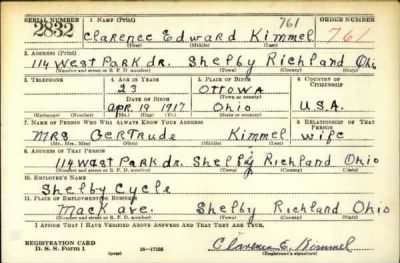 SERIAL NUMBER 1. NAME (Print) ORDER NUMBER
2832 Clarence Edward Kimmel 761 761
(First) (Middle) (Last)
2. ADDRESS (Print)
114 West Park dr. Shelby Richland Ohio
(Number and street or R. F. D. number) (Town) (County) (State)
3. TELEPHONE 4. AGE IN YEARS 5. PLACE OF BIRTH 6. COUNTRY OF CITIZENSHIP
23 Ottowa
DATE OF BIRTH (Town or county)
Apr. 19 1917 Ohio U.S.A.
(Exchange) (Number) (Mo.) (Day) (Yr.) (State or country)
7. NAME OF PERSON WHO WILL ALWAYS KNOW YOUR ADDRESS 8. RELATIONSHIP OF THAT PERSON
Mrs Gertrude Kimmel wife
(Mr., Mrs., Miss) (First) (Middle) (Last)
9. ADDRESS OF THAT PERSON
114 West Park dr. Shelby Richland Ohio
(Number and street or R. F. D. number) (Town) (County) (State)
10. EMPLOYER'S NAME
Shelby Cycle
11. PLACE OF EMPLOYMENT OR BUSINESS
Mack ave. Shelby Richland Ohio
(Number and street or R. F. D. number) (Town) (County) (State)
I AFFIRM THAT I HAVE VERIFIED ABOVE ANSWERS AND THAT THEY ARE TRUE.
REGISTRATION CARD
D. S. S. Form 1 Clarence E. Kimmel
(Registrant's signature)